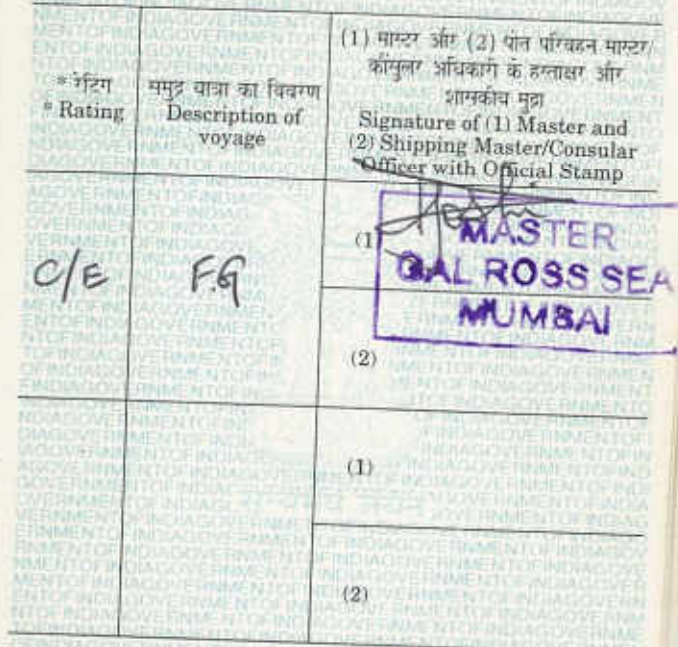 * रेटिंग
* Rating
समुद्र यात्रा का विवरण
Description of
voyage
(1) मास्टर और (2) पोत परिवहन मास्टर/
कौंसुलर अधिकारी के हस्ताक्षर और
शासकीय मुद्रा
Signature of (1) Master and
(2) Shipping Master/Consular
Officer with Official Stamp
C/E
F.G
(1)
MASTER
GAL ROSS SEA
MUMBAI
(2)
(1)
(2)